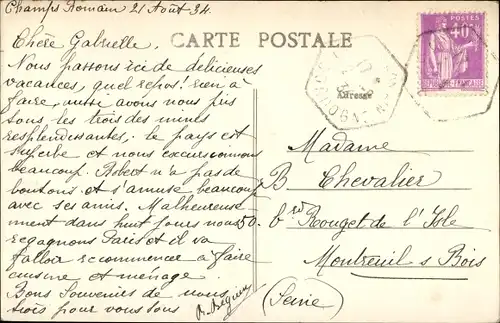 Champs Romain 21 Août 34
CARTE POSTALE
Chère Gabrielle.
Nous passons ici de délicieuses
vacances, quel repos! rien à
faire, aussi avons nous pris
tous les trois des mines
resplendissantes. le pays est
superbe et nous excursionnons
beaucoup. Robert n'a pas de
boutons et s'amuse beaucoup
avec ses amis. Malheureuse-
ment dans huit jours nous
regagnons Paris et il va
falloir recommencer à faire
cuisine et ménage.
Bons Souvenirs de nous
trois pour vous tous
Adresse
Madame
B Chevalier
50. Bd Rouget de l'Isle
Montreuil s Bois
(Seine)
POSTES
40c
REPUBLIQUE FRANÇAISE
DORDOGNE